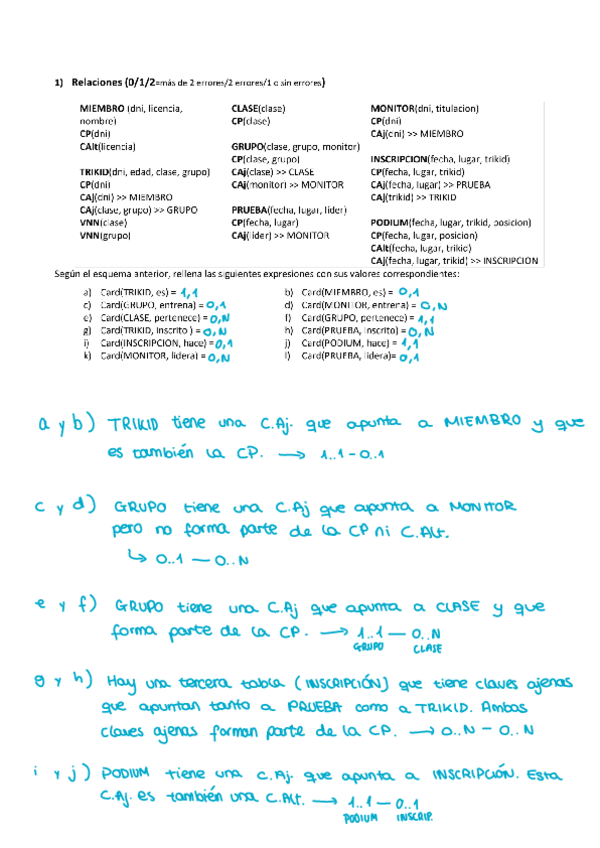 1) Relaciones (0/1/2=más de 2 errores/2 errores/1 o sin errores)
MIEMBRO (dni, licencia,
nombre)
CP(dni)
CAlt(licencia)
TRIKID(dni, edad, clase, grupo)
CP(dni)
CAj(dni) >> MIEMBRO
CAj(clase, grupo) >> GRUPO
VNN(clase)
VNN(grupo)
CLASE(clase)
CP(clase)
GRUPO(clase, grupo, monitor)
CP(clase, grupo)
CAj(clase) >> CLASE
CAj(monitor) >> MONITOR
PRUEBA(fecha, lugar, líder)
CP(fecha, lugar)
CAj(líder) >> MONITOR
MONITOR(dni, titulacion)
CP(dni)
CAj(dni) >> MIEMBRO
INSCRIPCION(fecha, lugar, trikid)
CP(fecha, lugar, trikid)
CAj(fecha, lugar) >> PRUEBA
CAj(trikid) >> TRIKID
PODIUM(fecha, lugar, trikid, posicion)
CP(fecha, lugar, posicion)
CAlt(fecha, lugar, trikid)
CAj(fecha, lugar, trikid) >> INSCRIPCION
Según el esquema anterior, rellena las siguientes expresiones con sus valores correspondientes:
a) Card(TRIKID, es) = 1,1
b) Card(MIEMBRO, es) = 0,1
c) Card(GRUPO, entrena) = 0,1
d) Card(MONITOR, entrena) = 0,N
e) Card(CLASE, pertenece) = 0,N
f) Card(GRUPO, pertenece) = 1,1
g) Card(TRIKID, inscrito ) = 0,N
h) Card(PRUEBA, inscrito) = 0,N
i) Card(INSCRIPCION, hace) = 0,1
j) Card(PODIUM, hace) = 1,1
k) Card(MONITOR, lidera) = 0,N
l) Card(PRUEBA, lidera)= 0,1
a y b) TRIKID tiene una C.Aj. que apunta a MIEMBRO y que
es también la CP. → 1..1 - 0..1
c y d) GRUPO tiene una C.Aj que apunta a MONITOR
pero no forma parte de la CP ni C.Alt.
↳ 0..1 — 0..N
e y f) GRUPO tiene una C.Aj que apunta a CLASE y que
forma parte de la CP. → 1..1 — 0..N
GRUPO CLASE
g y h) Hay una tercera tabla (INSCRIPCIÓN) que tiene claves ajenas
que apuntan tanto a PRUEBA como a TRIKID. Ambas
claves ajenas forman parte de la CP. → 0..N - 0..N
i y j) PODIUM tiene una C.Aj. que apunta a INSCRIPCIÓN. Esta
C.Aj. es también una C.Alt. → 1..1 — 0..1
PODIUM INSCRIP.